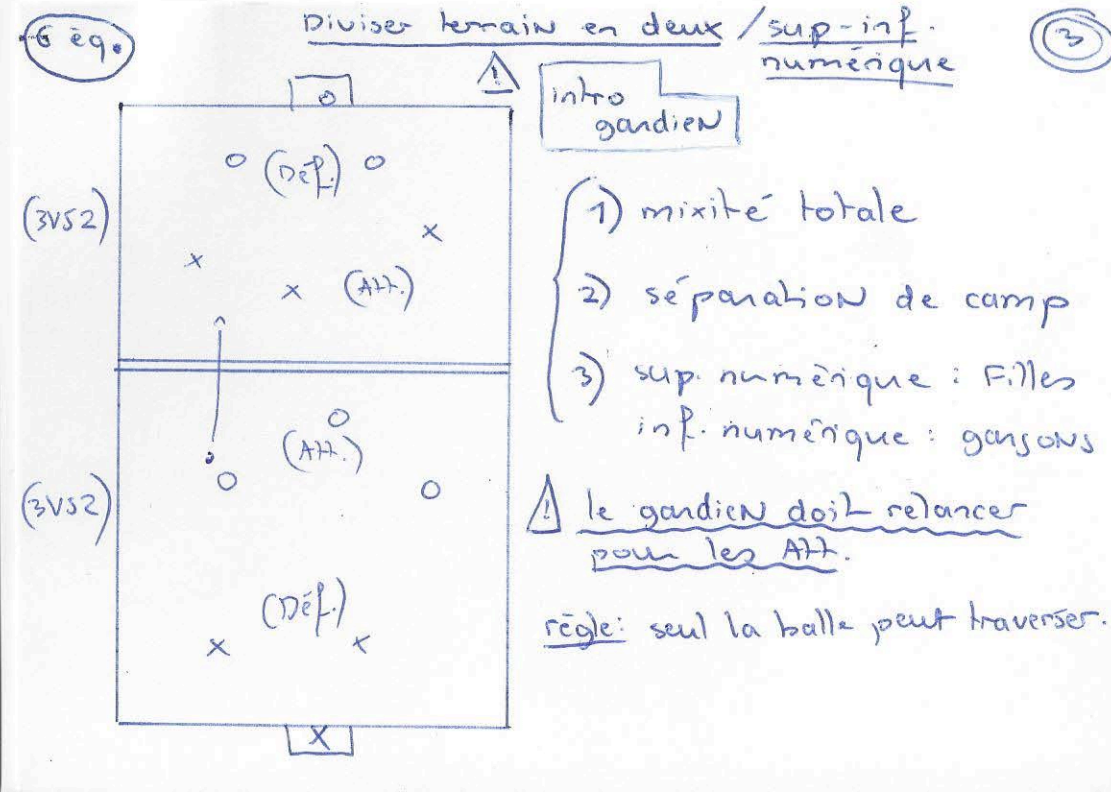 6 éq.
Diviser terrain en deux / sup-inf.
numérique
3
!
intro
gardien
O
O (Déf.) O
(3VS2)
X
X
X (Att.)
1) mixité totale
2) séparation de camp
3) sup. numérique : Filles
inf. numérique : garçons
O
(Att.)
O
O
(3VS2)
! le gardien doit relancer
pour les Att.
(Déf.)
X
X
règle: seul la balle peut traverser.
X